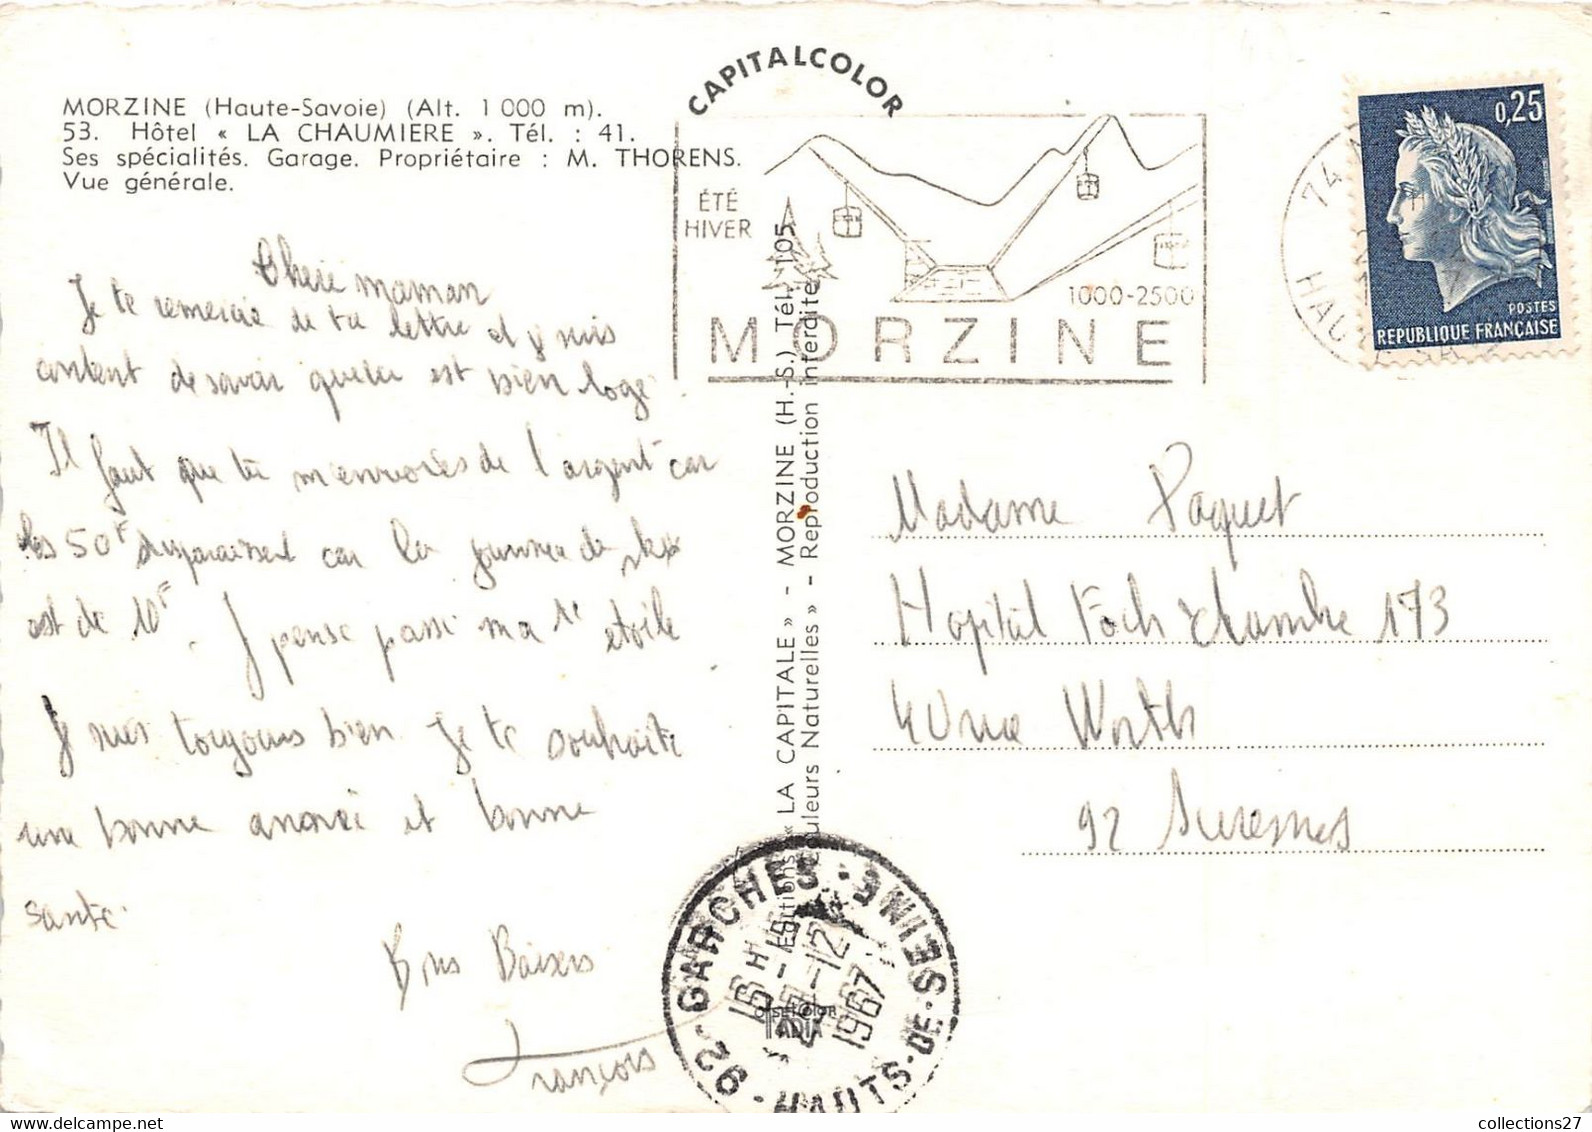 MORZINE (Haute-Savoie) (Alt. 1 000 m).
53. Hôtel « LA CHAUMIERE ». Tél. : 41.
Ses spécialités. Garage. Propriétaire : M. THORENS.
Vue générale.
CAPITALCOLOR
ÉTÉ
HIVER
1000-2500
MORZINE
74
HAUTE SAVOIE
0,25
POSTES
REPUBLIQUE FRANÇAISE
Cherie maman
Je te remercie de ta lettre et j suis
content de savoir que est bien logé
Il faut que tu m'envoies de l'argent car
les 50F disparaissent car la journée de ski
est de 10F. J pense passé ma 1e etoile
J suis toujours bien Je te souhaite
une bonne année et bonne
santé.
Gros Baisers
François
Editions « LA CAPITALE » - MORZINE (H.-S.) Tél. 105
Couleurs Naturelles » - Reproduction interdite
Madame Paquet
Hopital Foch chambre 173
40 rue Worth
92 Suresnes
92-GARCHES
HAUTS-DE-SEINE
16H15
-12
1967
OFFSETCOLOR
IADIA
collections27